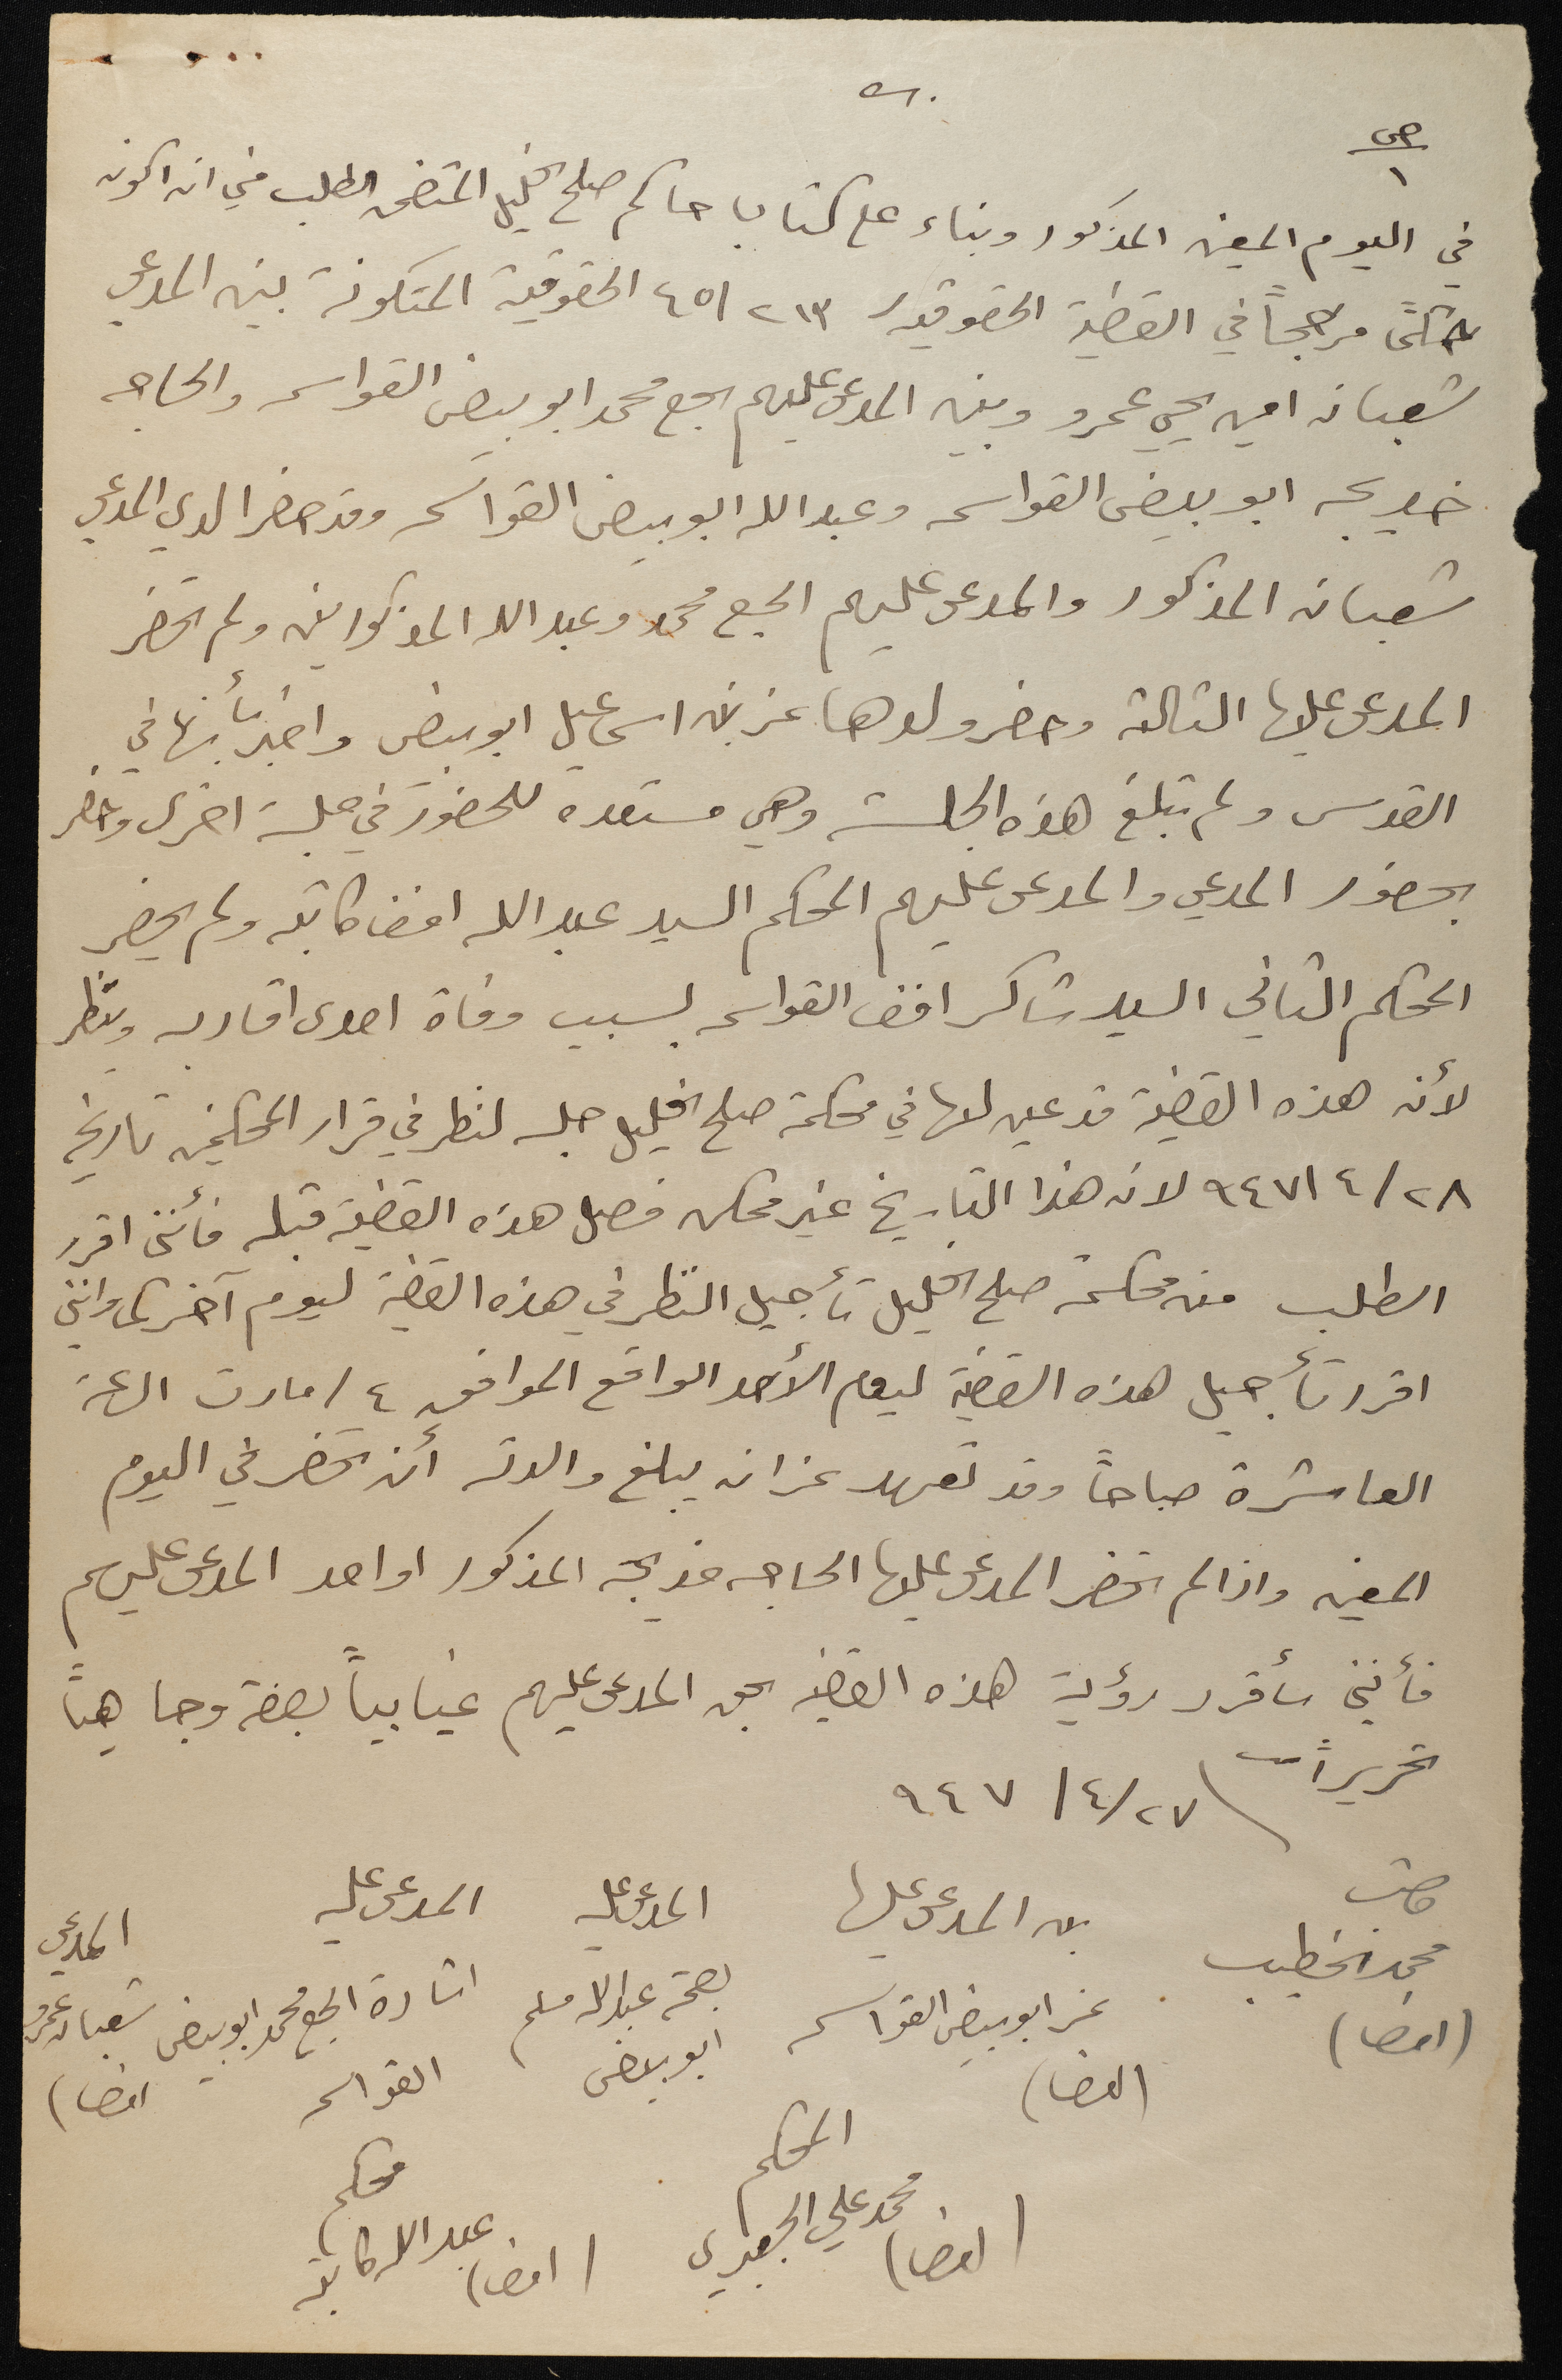 ص
١
في اليوم المعين المذكور وبناء على كتاب حاكم صلح الخليل المتضمن الطلب مني ان اكون
حكماً مرجحاً في القضية الحقوقية ٢١٣/٤٥ الحقوقية المتكونة بين المدعي
شعبان امين يحيى عمرو وبين المدعى عليهم الحج محمد ابو بيض القواسمه والحاجه
خديجه ابو بيض القواسمه وعبد الله ابو بيض القواسمه وقد حضر الدي المدعي
شعبان المذكور والمدعى عليهم الحج محمد وعبد الله المذكورين ولم تحضر
المدعى عليها الثالثة وحضر ولدها عز بن اسماعيل ابو بيض واخبر بأنها في
القدس ولم تبلغ هذه الجلسة وهي مستعدة للحضور في جلسة اخرى وحضر
بحضور المدعي والمدعى عليهم المحكم السيد عبد الله افندي كاتبه ولم يحضر
المحكم الثاني السيد شاكر افندي القواسمه بسبب وفاة احدى اقاربه ونظر
لأن هذه القضية قد عين لها في محكمة صلح الخليل جلسه لنظر في قرار المحكمين تاريخ
٢٨/٤/٩٤٧ لان هذا التاريخ غير ممكن فصل هذه القضية قبله فأنني اقرر
الطلب من محكمة صلح الخليل تأجيل النظر في هذه القضية ليوم آخر كما وانني
اقرر تأجيل هذه القضية ليوم الأحد الواقع الموافق ٤/ مارت الساعة
العاشرة صباحاً وقد تعهد عز ان يبلغ والدته أن تحضر في اليوم
المعين واذا لم تحضر المدعى عليها الحاجه خديجه المذكور او احد المدعى عليهم
فأنني سأقرر رؤية هذه القضية بحق المدعى عليهم غيابياً بصفة وجاهياً
تحريراً
٢٧/٤/٩٤٧
كاتب بن المدعى عليها المدعى عليه المدعى عليه المدعي
محمد الخطيب عز ابو بيض القواسمه بصمة عبد الله مسلم اشارة الحج محمد ابو بيض شعبان عمرو
(امضا) (امضا) ابو بيض القواسمه (امضا)
المحكم محكم
محمد علي الجعبري عبد الله كاتبه
(امضا) (امضا)